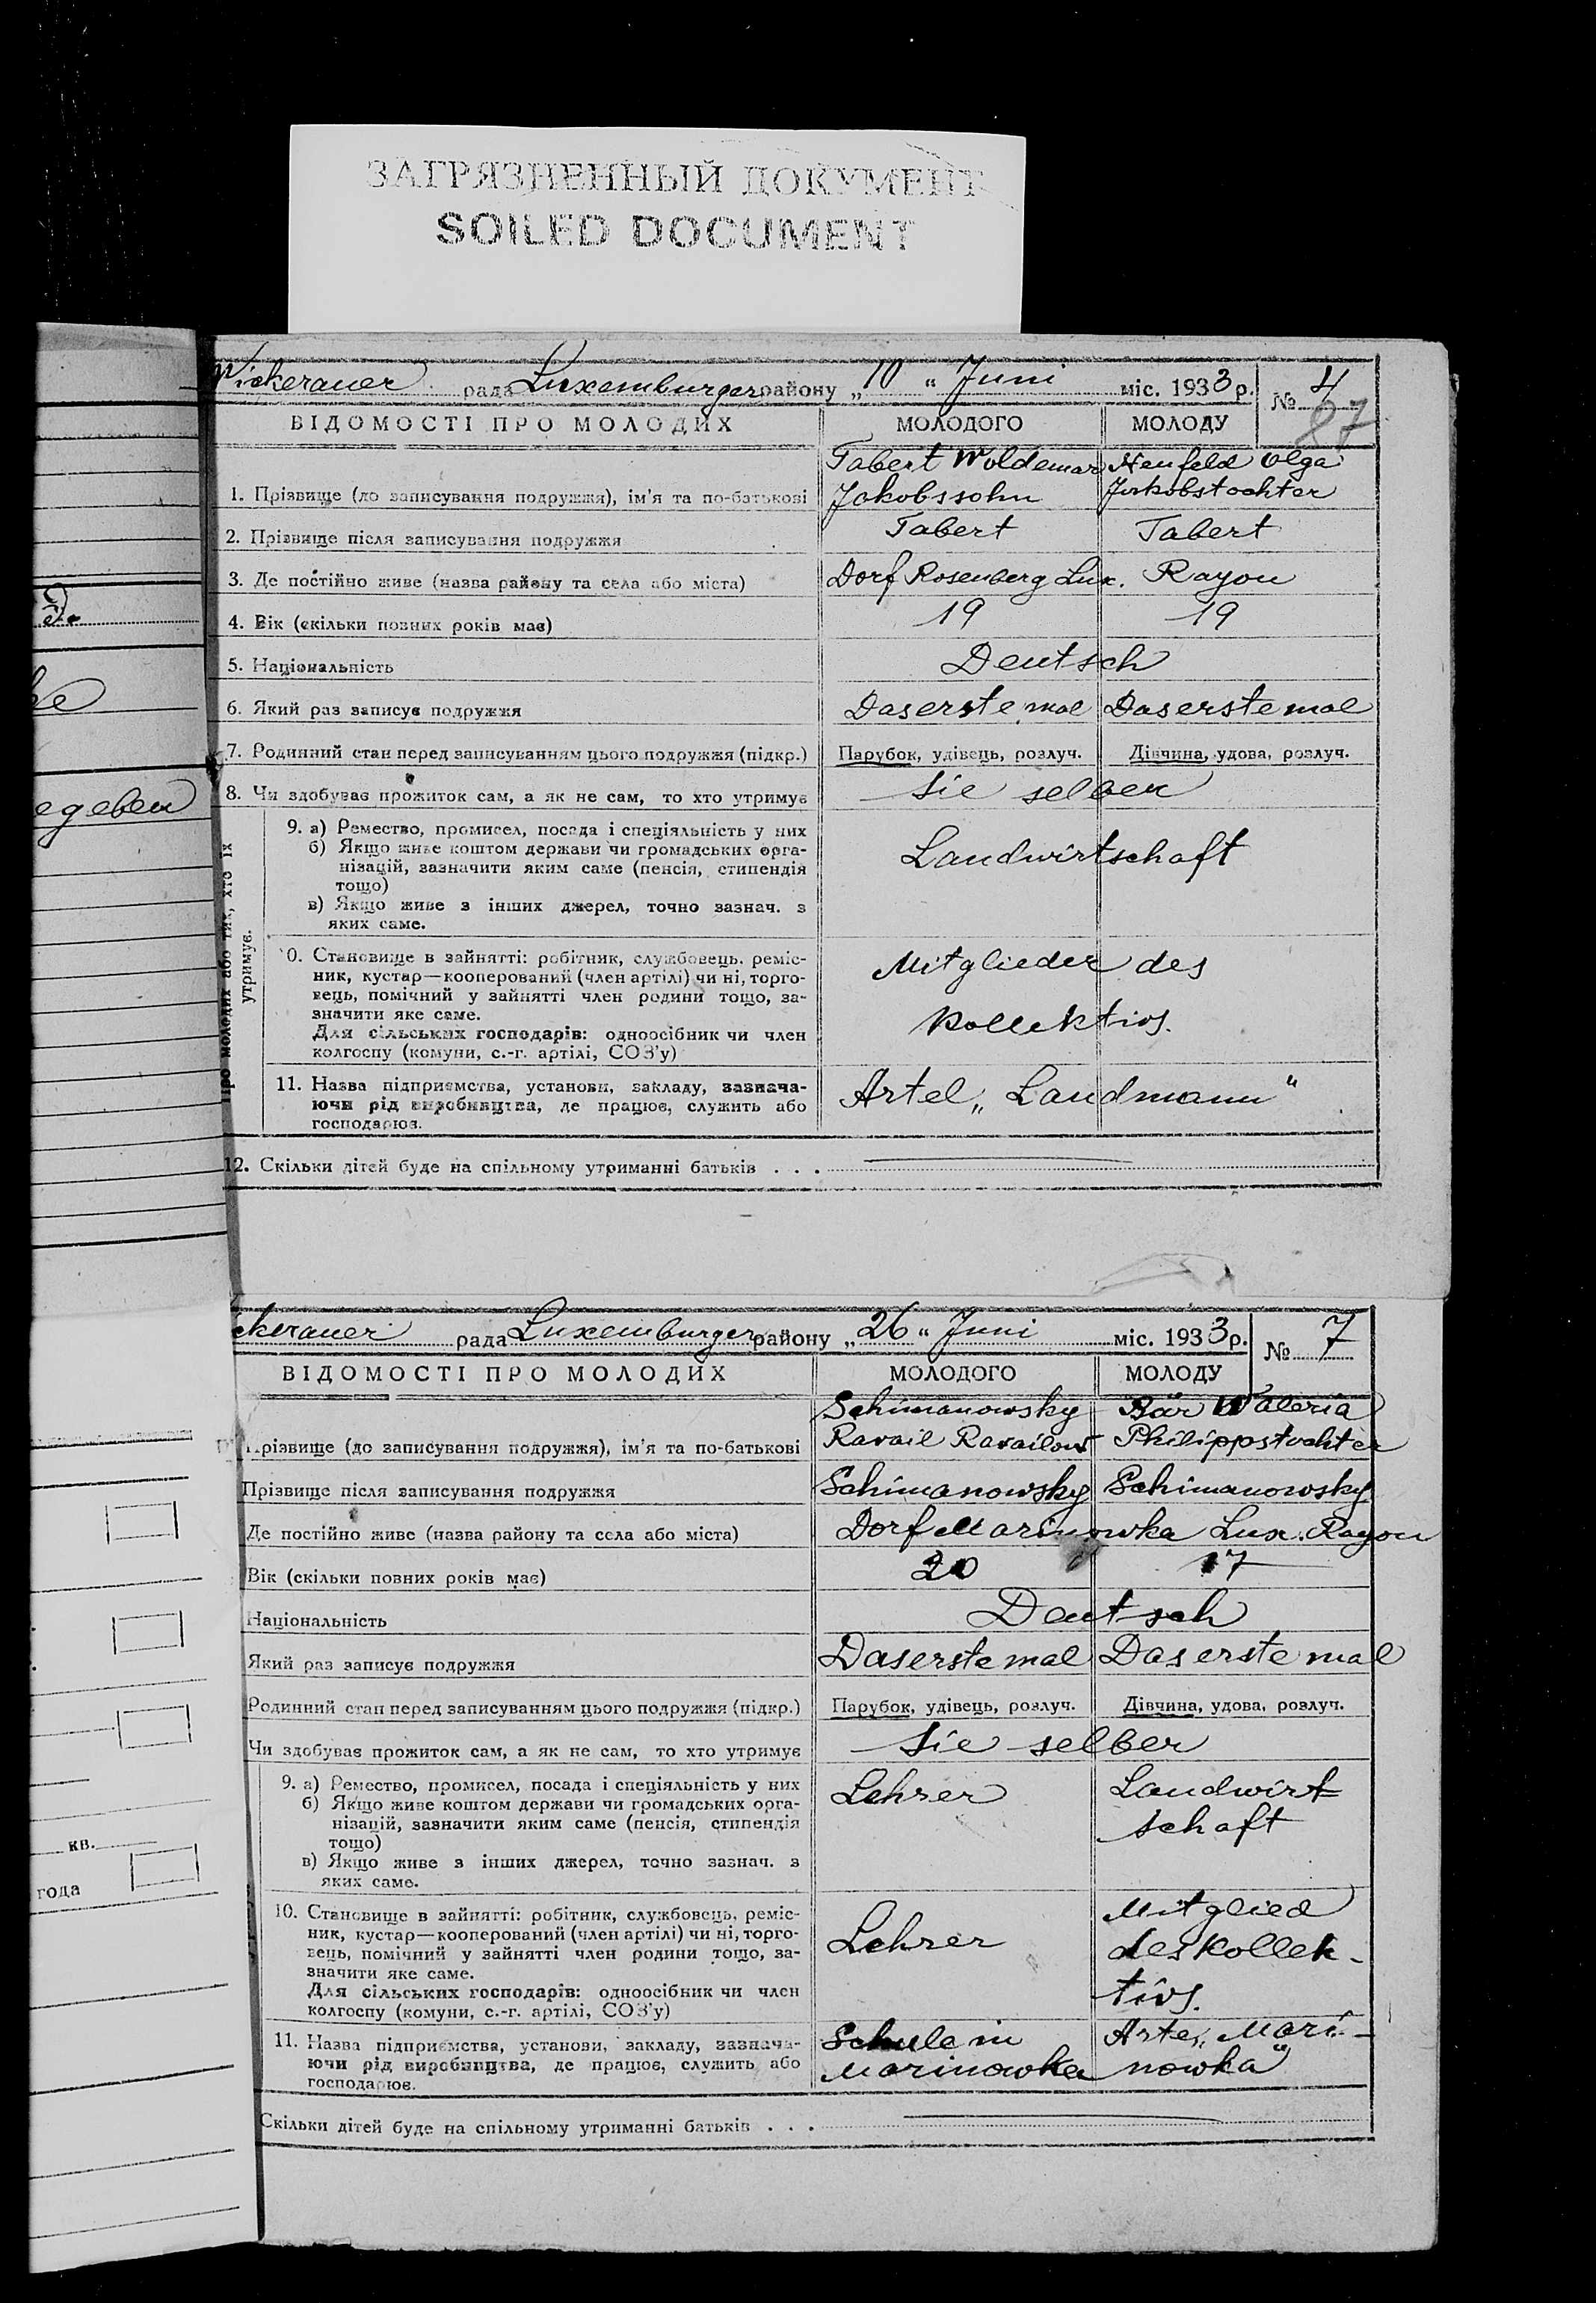 ЗАГРЯЗНЕННЫЙ ДОКУМЕНТ
SOILED DOCUMENT
Wickerauer рада Luxemburger району „10“ Juni міс. 1933 р. № 4
87
ВІДОМОСТІ ПРО МОЛОДИХ МОЛОДОГО МОЛОДУ
Tabert Woldemar Neufeld Olga
1. Прізвище (до записування подружжя), ім'я та по-батькові Jakobssohn Jakobstochter
2. Прізвище після записування подружжя Tabert Tabert
3. Де постійно живе (назва району та села або міста) Dorf Rosenberg Lux. Rayon
4. Вік (скільки повних років має) 19 19
5. Національність Deutsch
6. Який раз записує подружжя Das erste mal Das erste mal
7. Родинний стан перед записуванням цього подружжя (підкр.) Парубок, удівець, розлуч. Дівчина, удова, розлуч.
8. Чи здобуває прожиток сам, а як не сам, то хто утримує Sie selber
про молодих або тих, хто їх
утримує.
9. а) Ремество, промисел, посада і спеціяльність у них
б) Якщо живе коштом держави чи громадських орга-
нізацій, зазначити яким саме (пенсія, стипендія
тощо)
в) Якщо живе з інших джерел, точно зазнач. з
яких саме.
Landwirtschaft
10. Становище в зайнятті: робітник, службовець, реміс-
ник, кустар—кооперований (член артілі) чи ні, торго-
вець, помічний у зайнятті член родини тощо, за-
значити яке саме.
Для сільських господарів: одноосібник чи член
колгоспу (комуни, с.-г. артілі, СОЗ'у)
Mitglieder des
Kollektivs.
11. Назва підприємства, установи, закладу, зазнача-
ючи рід виробництва, де працює, служить або
господарює.
Artel „Landmann“
12. Скільки дітей буде на спільному утриманні батьків . . .
ckerauer рада Luxemburger району „26“ Juni міс. 1933 р. № 7
ВІДОМОСТІ ПРО МОЛОДИХ МОЛОДОГО МОЛОДУ
Schimanowsky Bär Waleria
Прізвище (до записування подружжя), ім'я та по-батькові Ravail Ravailow Philippstochter
Прізвище після записування подружжя Schimanowsky Schimanowsky
Де постійно живе (назва району та села або міста) Dorf Marinowka Lux. Rayon
Вік (скільки повних років має) 20 17
Національність Deutsch
Який раз записує подружжя Das erste mal Das erste mal
Родинний стан перед записуванням цього подружжя (підкр.) Парубок, удівець, розлуч. Дівчина, удова, розлуч.
Чи здобуває прожиток сам, а як не сам, то хто утримує Sie selber
9. а) Ремество, промисел, посада і спеціяльність у них
б) Якщо живе коштом держави чи громадських орга-
нізацій, зазначити яким саме (пенсія, стипендія
тощо)
в) Якщо живе з інших джерел, точно зазнач. з
яких саме.
Lehrer Landwirt
schaft
10. Становище в зайнятті: робітник, службовець, реміс-
ник, кустар—кооперований (член артілі) чи ні, торго-
вець, помічний у зайнятті член родини тощо, за-
значити яке саме.
Для сільських господарів: одноосібник чи член
колгоспу (комуни, с.-г. артілі, СОЗ'у)
Lehrer Mitglied
des Kollek-
tivs.
11. Назва підприємства, установи, закладу, зазнача-
ючи рід виробництва, де працює, служить або
господарює.
Schule in Artel „Mari-
Marinowka nowka“
Скільки дітей буде на спільному утриманні батьків . . .
egeben
кв.
года